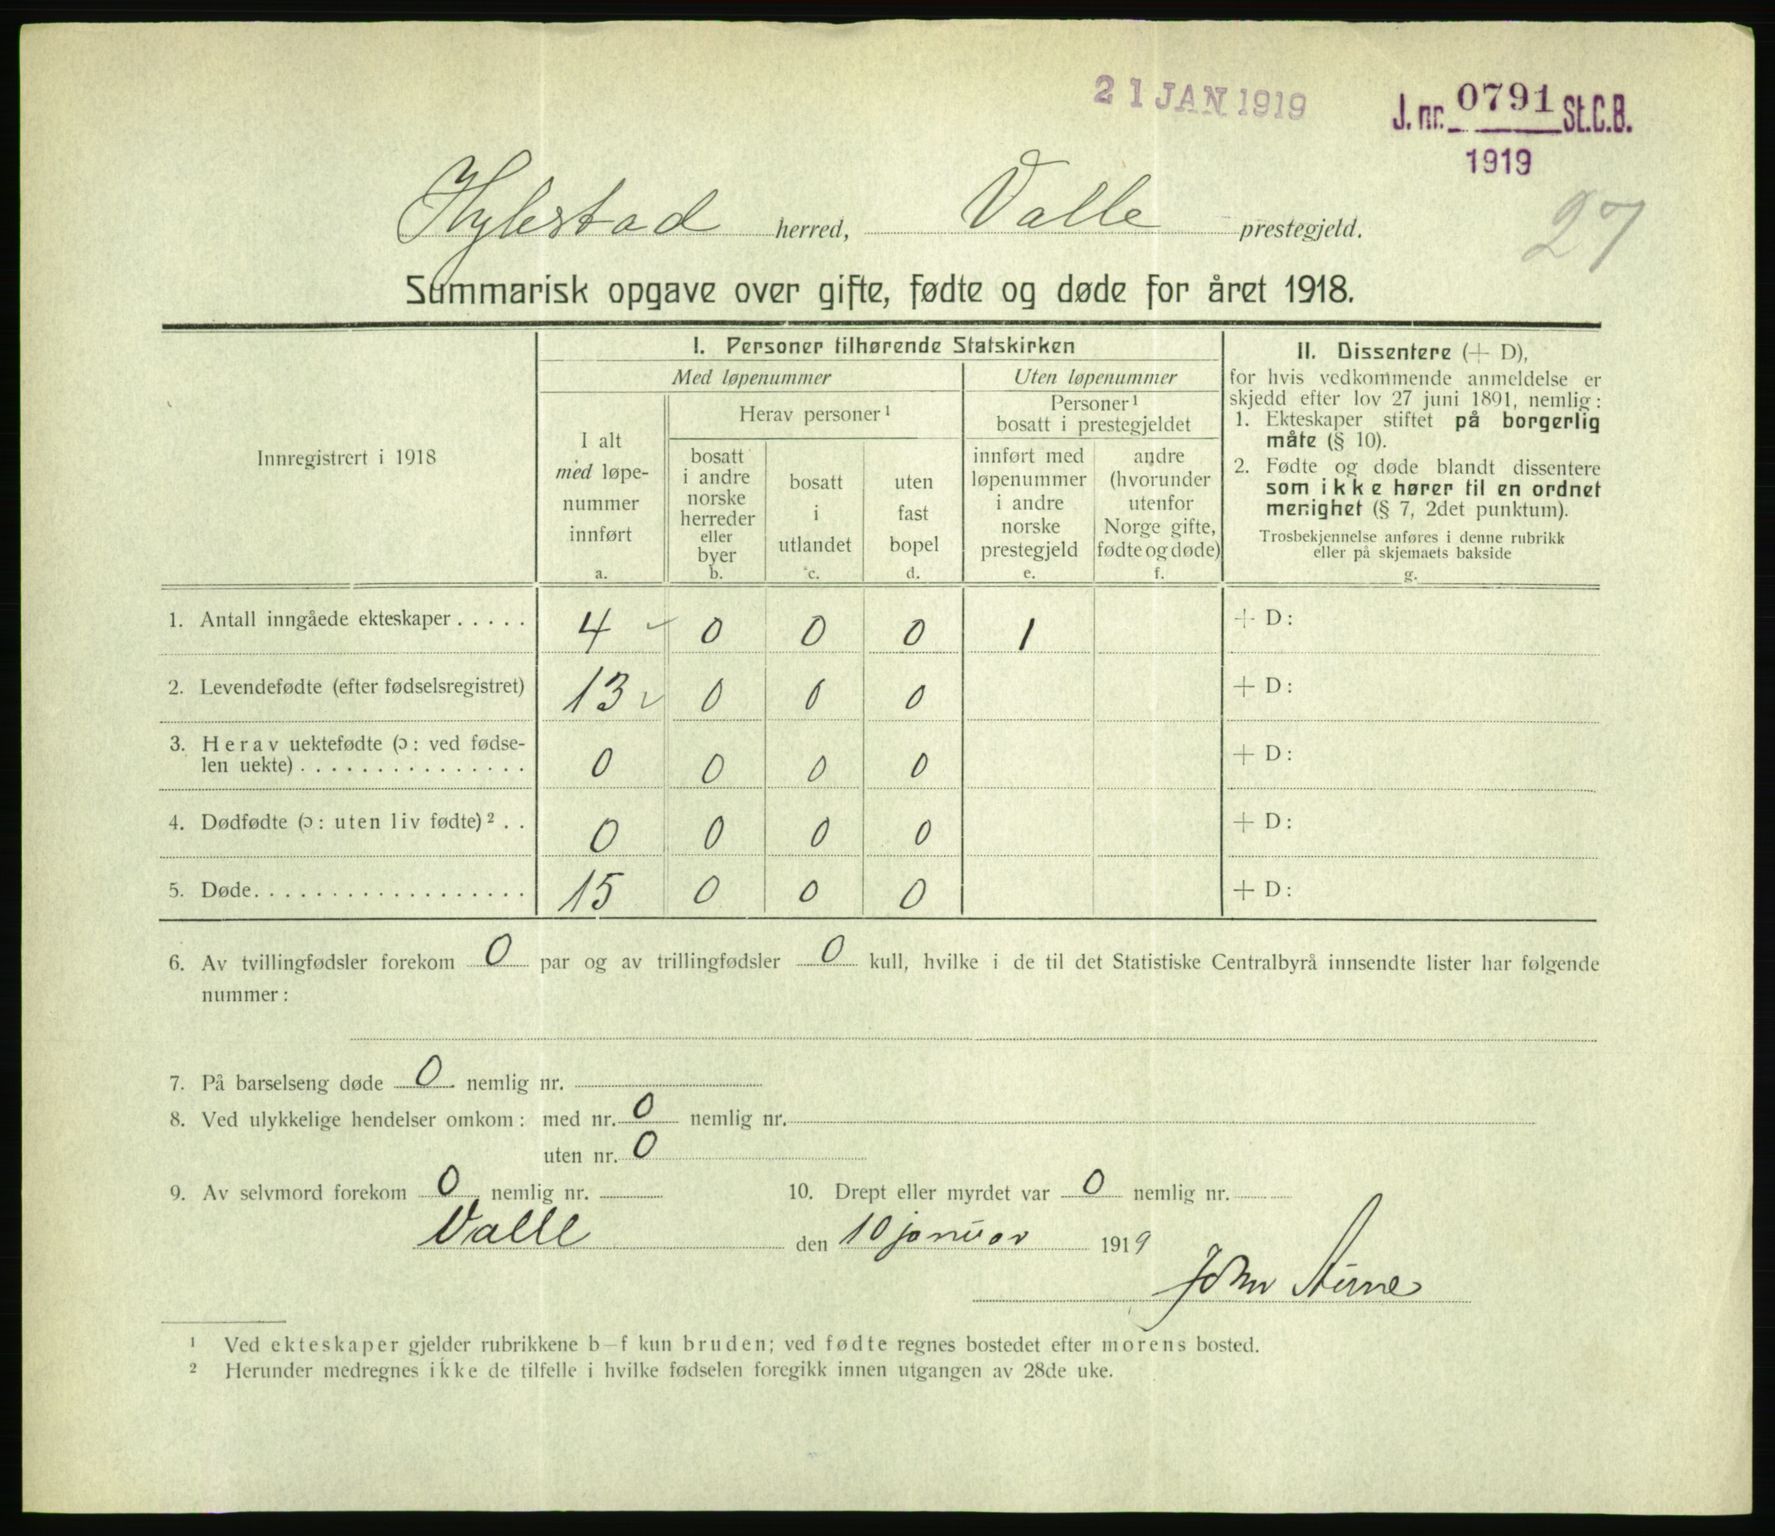 21 JAN 1919
J. nr. 0791 St.C.B.
1919
27
Hylestad herred, Valle prestegjeld.
Summarisk opgave over gifte, fødte og døde for året 1918.
Innregistrert i 1918
I. Personer tilhørende Statskirken
Med løpenummer
Uten løpenummer
I alt
med løpe-
nummer
innført
a.
Herav personer¹
bosatt
i andre
norske
herreder
eller
byer
b.
bosatt
i
utlandet
c.
uten
fast
bopel
d.
Personer¹
bosatt i prestegjeldet
innført med
løpenummer
i andre
norske
prestegjeld
e.
andre
(hvorunder
utenfor
Norge gifte,
fødte og døde)
f.
II. Dissentere (+ D),
for hvis vedkommende anmeldelse er
skjedd efter lov 27 juni 1891, nemlig:
1. Ekteskaper stiftet på borgerlig
måte (§ 10).
2. Fødte og døde blandt dissentere
som ikke hører til en ordnet
menighet (§ 7, 2det punktum).
Trosbekjennelse anføres i denne rubrikk
eller på skjemaets bakside
g.
1. Antall inngåede ekteskaper . . . . . 4 ✓ 0 0 0 1 + D:
2. Levendefødte (efter fødselsregistret) 13 ✓ 0 0 0 + D:
3. Herav uektefødte (ɔ: ved fødse-
len uekte) . . . . . . . . . . . . . . . 0 0 0 0 + D:
4. Dødfødte (ɔ: uten liv fødte)² . . 0 0 0 0 + D:
5. Døde. . . . . . . . . . . . . . . . . . 15 0 0 0 + D:
6. Av tvillingfødsler forekom 0 par og av trillingfødsler 0 kull, hvilke i de til det Statistiske Centralbyrå innsendte lister har følgende
nummer:
7. På barselseng døde 0 nemlig nr.
8. Ved ulykkelige hendelser omkom: med nr. 0 nemlig nr.
uten nr. 0
9. Av selvmord forekom 0 nemlig nr. 10. Drept eller myrdet var 0 nemlig nr.
Valle den 10 januar 1919
John
¹ Ved ekteskaper gjelder rubrikkene b—f kun bruden; ved fødte regnes bostedet efter morens bosted.
² Herunder medregnes ikke de tilfelle i hvilke fødselen foregikk innen utgangen av 28de uke.